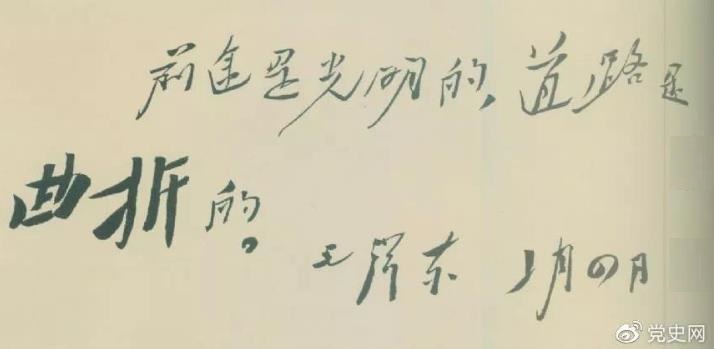 前途是光明的，道路是
曲折的。
毛泽东 九月四日
党史网